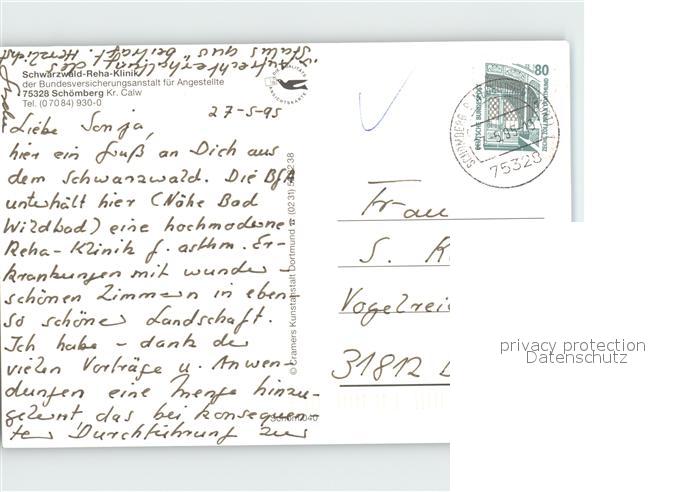 Schwarzwald-Reha-Klinik
der Bundesversicherungsanstalt für Angestellte
75328 Schömberg Kr. Calw
Tel. (0 70 84) 930-0
27-5-95
Liebe Sonja,
hier ein Gruß an Dich aus
dem Schwarzwald. Die BfA
unterhält hier (Nähe Bad
Wildbad) eine hochmoderne
Reha-Klinik f. asthm. Er-
krankungen mit wunder-
schönen Zimmern in eben-
so schöner Landschaft.
Ich habe - dank der
vielen Vorträge u. Anwen-
dungen eine Menge hinzu-
gelernt, das bei konsequen-
ter Durchführung zur
Aufrechterhaltung des
Status quo beiträgt. Herzlichst
© Cramers Kunstanstalt Dortmund
80
DEUTSCHE BUNDESPOST
SCHÖMBERG
75328
Frau
S. K
Vogelrei
31812
privacy protection
Datenschutz